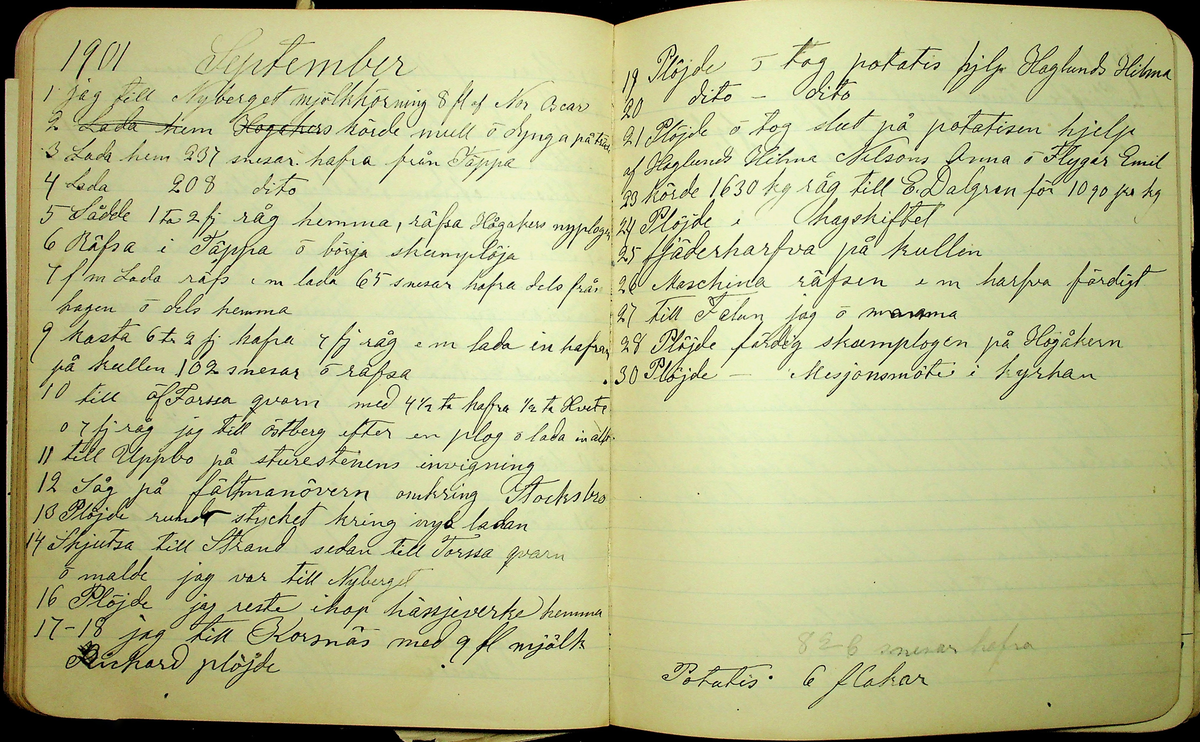 1901 September
1 jag till Nyberget mjölkkörning 8 fl af Nor Oscar
2 Lada hem Högåkers körde mull ö dynga på
3 Lada hem 237 snesar hafra från Täppa
4 Lada 208 dito
5 Sådde 1 ta 2 fj råg hemma, räfsa Högåkers nyplogen
6 Räfsa i Täppa ö börja skumplöja
7 f m Lada räfs e m lada 65 snesar hafra dels från
hagen ö dels hemma
9 kasta 6 ta 2 fj hafra 7 fj råg e m lada in hafran
på kullen 102 snesar ö räfsa
10 till Torssa qvarn med 4 1/2 ta hafra 1/2 ta Hvete
o 7 fj råg jag till Östberg efter en plog ö lada in allt
11 till Uppbo på sturestenens invigning
12 Såg på fältmanövern omkring Stocksbro
13 Plöjde rundt stycket kring nya ladan
14 Skjutsa till Strand sedan till Torssa qvarn
ö malde jag var till Nyberget
16 Plöjde jag reste ihop hässjeverke hemma
17-18 jag till Korsnäs med 9 fl mjölk
Richard plöjde
19 Plöjde ö tog potatis hjelp Haglunds Hilma
20 dito - dito
21 Plöjde ö tog slut på potatisen hjelp
af Haglunds Hilma Nilsons Anna ö Flygar Emil
23 körde 1630 kg råg till E. Dalgren för 10 90 pr kg
24 Plöjde i hagskiftet
25 fjäderharfva på kullen
26 Maschina räfsen e m harfva färdigt
27 till Falun jag ö mamma
28 Plöjde färdig skumplogen på Högåkern
30 Plöjde - Mesjonsmöte i kyrkan
82-6 snesar hafra
Potatis. 6 flakar